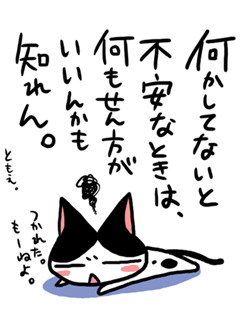 何かしてないと
不安なときは、
何もせん方が
いいんかも
知れん。
ともえ。
つかれた。
もーねよ。